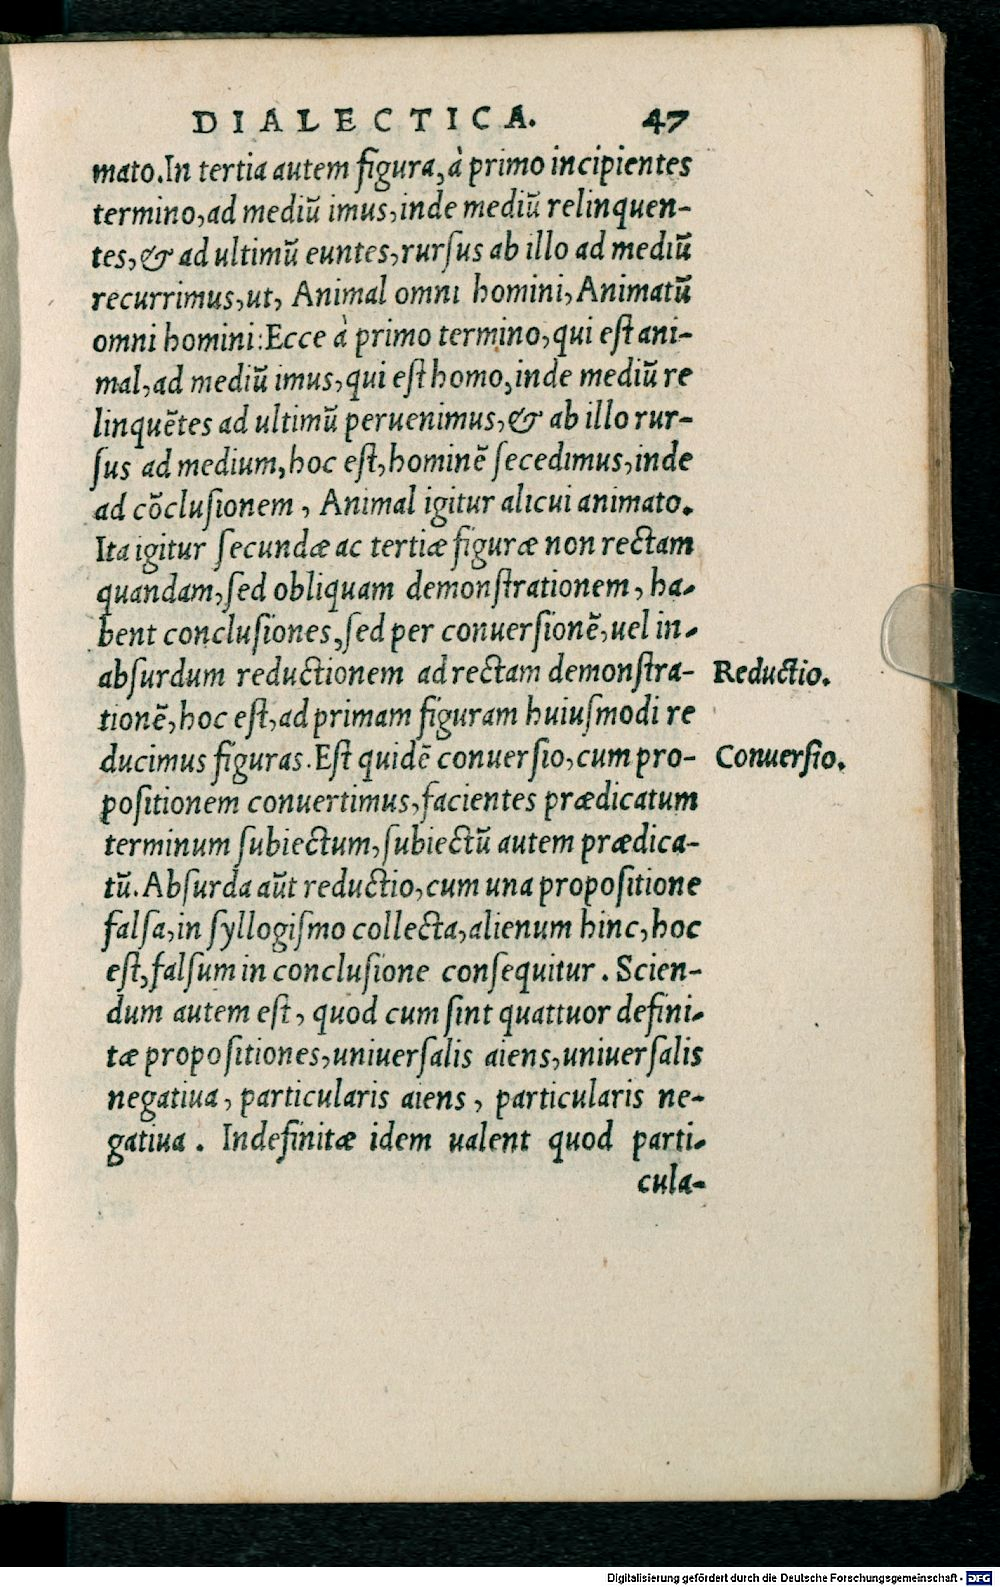 DIALECTICA. 47
mato. In tertia autem figura, à primo incipientes
termino, ad mediũ imus, inde mediũ relinquen-
tes, & ad ultimũ euntes, rurſus ab illo ad mediũ
recurrimus, ut, Animal omni homini, Animatũ
omni homini: Ecce à primo termino, qui eſt ani-
mal, ad mediũ imus, qui eſt homo, inde mediũ re
linquẽtes ad ultimũ peruenimus, & ab illo rur-
ſus ad medium, hoc eſt, hominẽ ſecedimus, inde
ad cõcluſionem, Animal igitur alicui animato.
Ita igitur ſecundæ ac tertiæ figuræ non rectam
quandam, ſed obliquam demonſtrationem, ha-
bent concluſiones, ſed per conuerſionẽ, uel in-
abſurdum reductionem ad rectam demonſtra- Reductio.
tionẽ, hoc eſt, ad primam figuram huiuſmodi re
ducimus figuras. Eſt quidẽ conuerſio, cum pro- Conuerſio.
poſitionem conuertimus, facientes prædicatum
terminum ſubiectum, ſubiectũ autem prædica-
tũ. Abſurda aũt reductio, cum una propoſitione
falſa, in ſyllogiſmo collecta, alienum hinc, hoc
eſt, falſum in concluſione conſequitur. Scien-
dum autem eſt, quod cum ſint quattuor defini-
tæ propoſitiones, uniuerſalis aiens, uniuerſalis
negatiua, particularis aiens, particularis ne-
gatiua. Indefinitæ idem ualent quod parti-
cula-
Digitalisierung gefördert durch die Deutsche Forschungsgemeinschaft - DFG